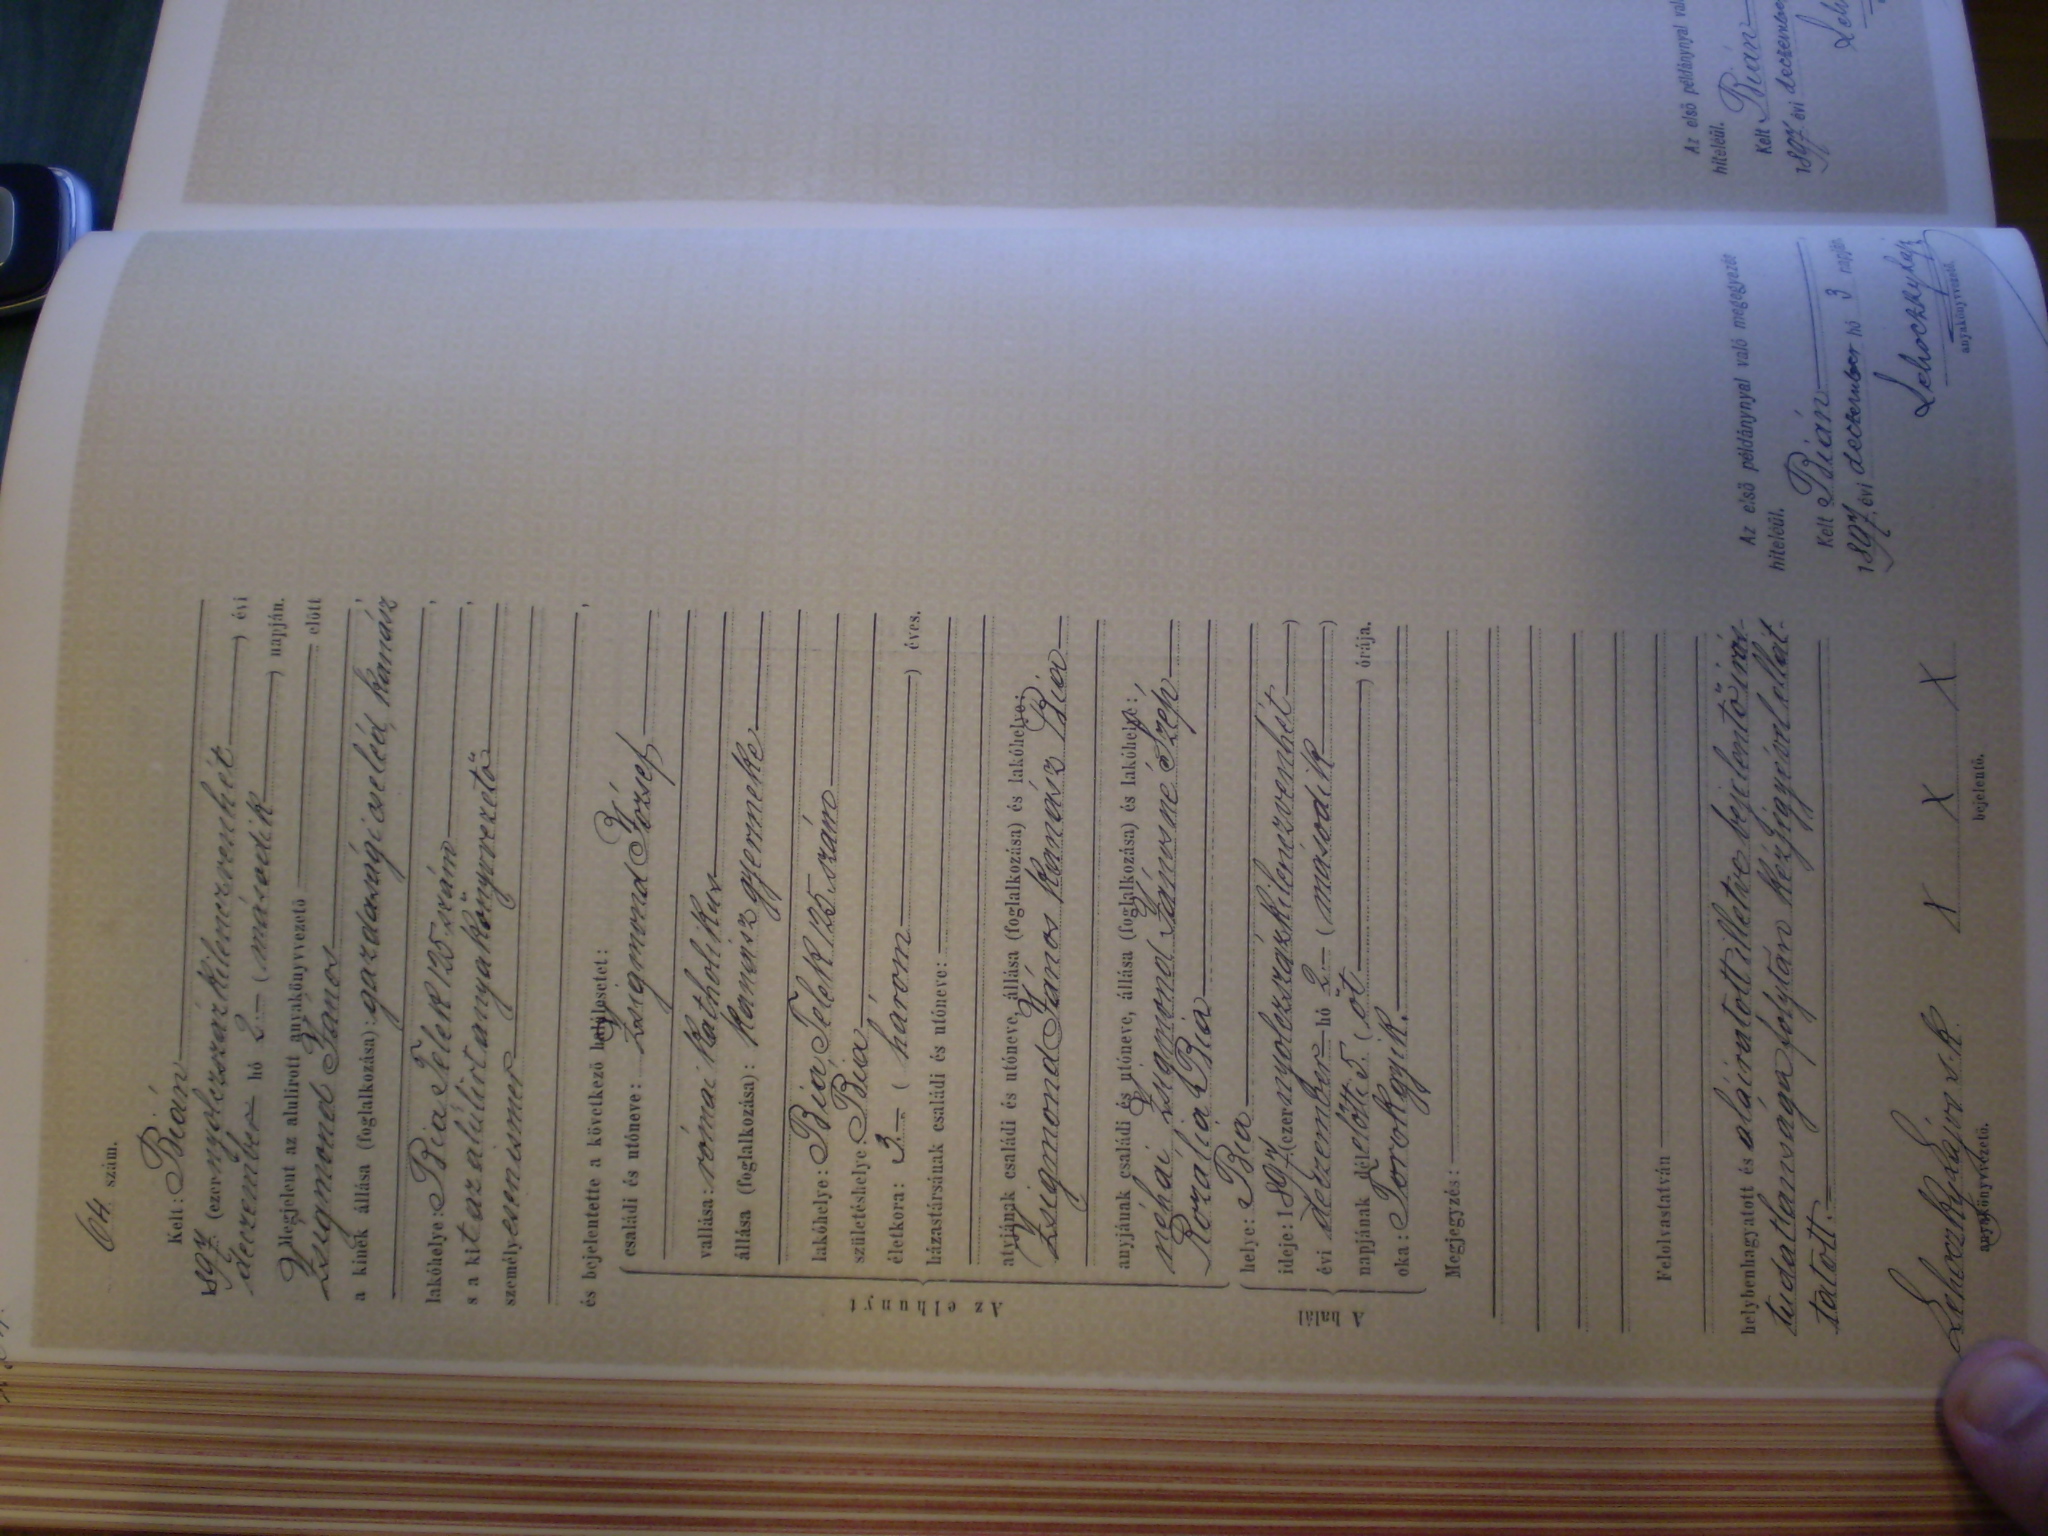 64. szám.
Kelt: Bián
1897 (ezernyolczszázkilenczvenhét) évi
deczember hó 2 (második) napján.
Megjelent az alulirott anyakönyvvezető előtt
Zsigmond János
a kinek állása (foglalkozása): gazdasági cseléd, kanász,
lakóhelye: Bia Telek 125 szám,
s a kit az alúlírt anyakönyvvezető,
személyesen ismer
és bejelentette a következő halálesetet:
Az elhunyt
családi és utóneve: Zsigmond József
vallása: római katholikus
állása (foglalkozása): kanász gyermeke
lakóhelye: Bia, Telek 125. szám
születéshelye: Bia
életkora: 3 (három) éves.
házastársának családi és utóneve:
atyjának családi és utóneve, állása (foglalkozása) és lakóhelye:
Zsigmond János kanász Bia
anyjának családi és utóneve, állása (foglalkozása) és lakóhelye:
néhai Zsigmond Jánosné Szép
Rozália Bia
A halál
helye: Bia
ideje: 1897 (ezernyolczszázkilenczvenhét)
évi deczember hó 2 (második)
napjának délelőtti 5. (öt) órája.
oka: Torokgyík.
Megjegyzés:
Felolvastatván
helybenhagyatott és aláíratott illetve bejelentő írás-
tudatlansága folytán kézjegyével ellát-
tatott.
Lehoczky Lajos s.k.
anyakönyvvezető.
X X X
bejelentő.
Az első példánynyal való megegyezés
hiteléül.
Kelt Bián
1897. évi deczember hó 3 napján
Lehoczky Lajos
anyakönyvvezető.
Az első példánynyal való
hiteléül.
Kelt Bián
1897 évi deczember